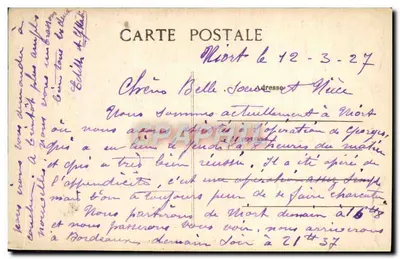 CARTE POSTALE
Niort le 12-3-27
Chère Belle-Soeur et Nièce
Adresse
Nous sommes actuellement à Niort
où nous avons opération de Georges,
qui a eu lieu le jeudi heures du matin
et qui a très bien réussie. Il a été opéré de
l'appendicite, c'est une opération assez simple
mais on a toujours peur de se faire charcuter
Nous partirons de Niort demain à 16
et nous passerons vous voir, nous arriverons
à Bordeaux demain soir à 21 37
vous demander à
coucher à bientôt plus amples
nouvelles nous vous embrassons
bien tous
Edith